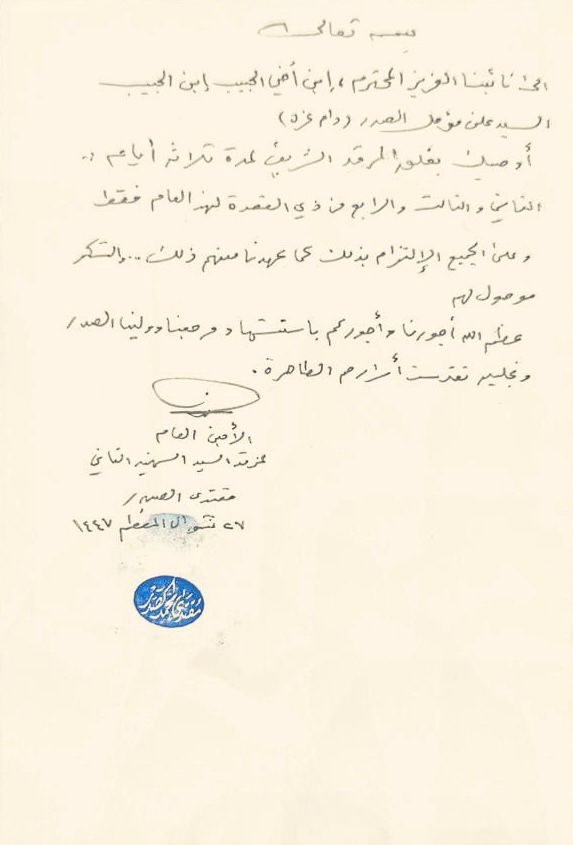 بسمه تعالى
الى نائبنا العزيز المحترم، إبن أخي الحبيب إبن الحبيب
السيد علي مؤمل الصدر (دام عزه)
أوصيك بغلق المرقد الشريف لمدة ثلاثة أيام ..
الثاني والثالث والرابع من ذي القعدة لهذا العام فقط
وعلى الجميع الإلتزام بذلك كما عهدنا منهم ذلك... والشكر
موصول لهم
عظم الله أجورنا وأجوركم باستشهاد مرجعنا وولينا الصدر
ونجليه تقدست أسرارهم الطاهرة.
الأمين العام
لمرقد السيد الشهيد الثاني
مقتدى الصدر
٢٧ شوال المعظم ١٤٤٧
مقتدى محمد الصدر